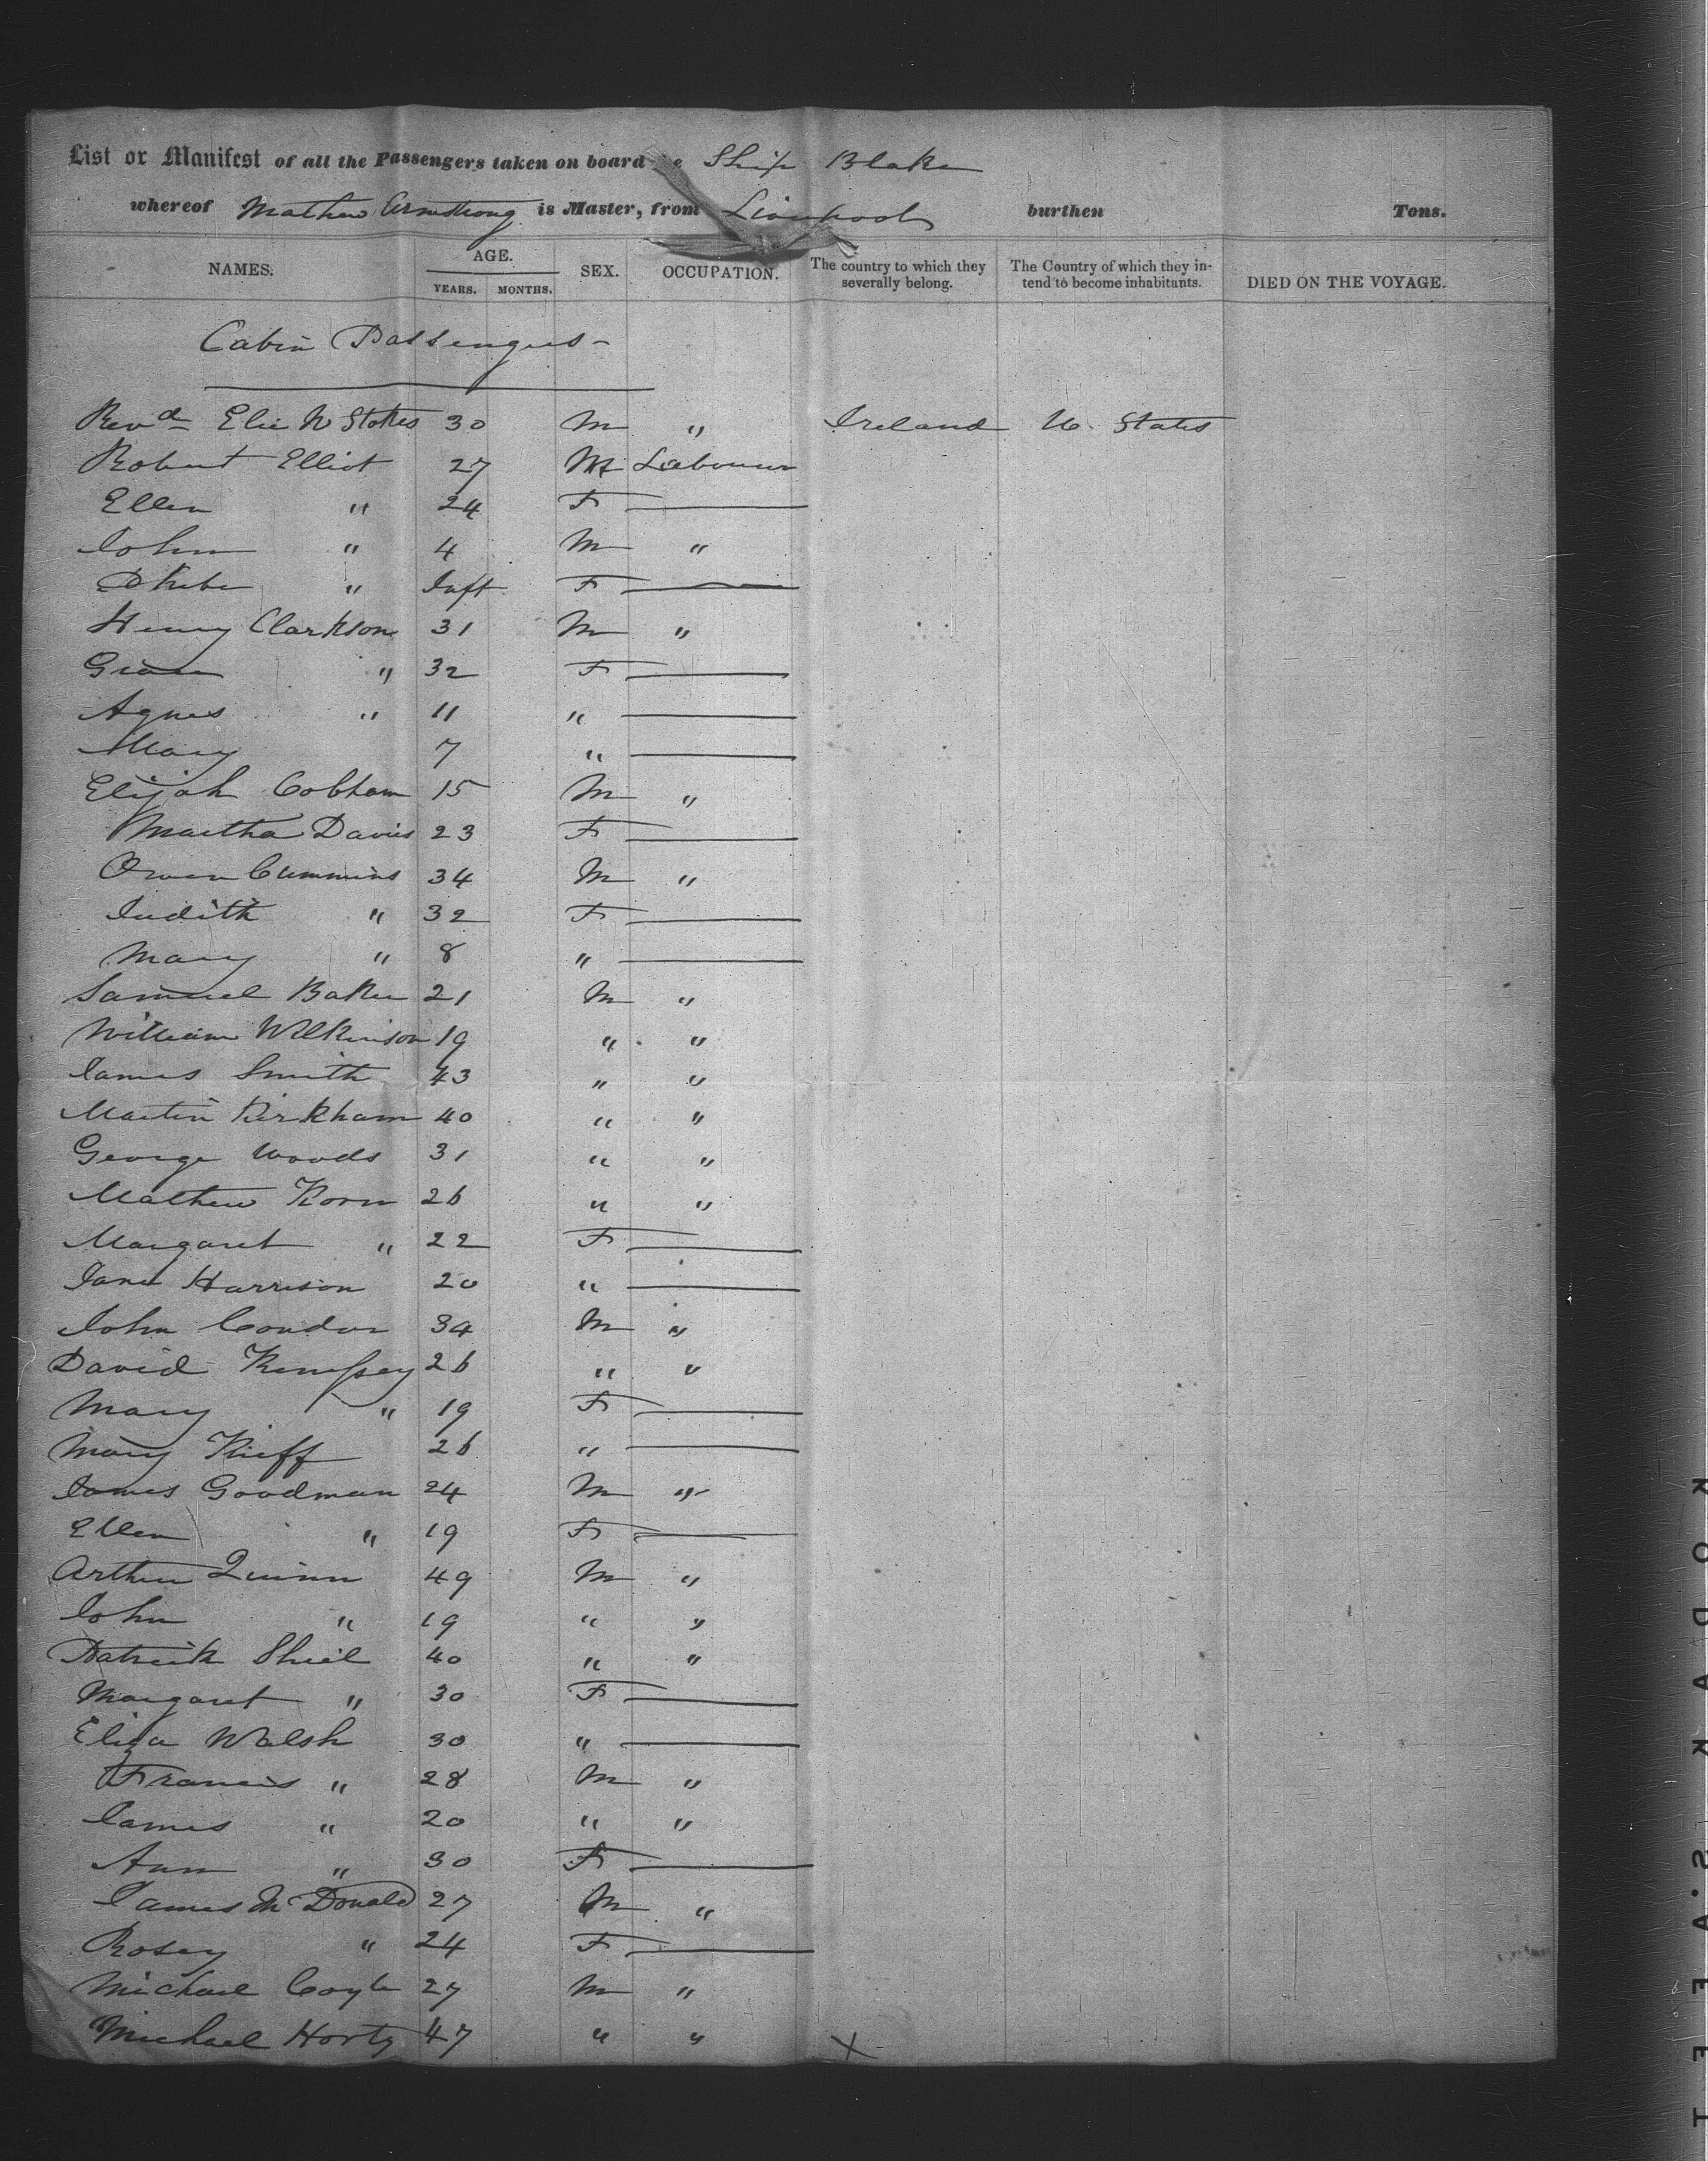 List or Manifest of all the Passengers taken on board Ship Blake
whereof Mathew Armstrong is Master, from Liverpool burthen Tons.
NAMES. AGE. YEARS. MONTHS. SEX. OCCUPATION. The country to which they severally belong. The Country of which they intend to become inhabitants. DIED ON THE VOYAGE.
Cabin Passengers
Revd Elie W Stokes 30 M " Ireland U. States
Robert Elliot 27 M Labourer
Ellen " 24 F
John " 4 M "
Phebe " Inft F
Henry Clarkson 31 M "
Grace " 32 F
Agnes " 11 "
Mary 7 "
Elijah Cobham 15 M "
Martha Davies 23 F
Owen Cummins 34 M "
Judith " 32 F
Mary " 8 "
Samuel Baker 21 M "
William Wilkinson 19 " "
James Smith 43 " "
Martin Kirkham 40 " "
George Woods 31 " "
Mathew Korn 26 " "
Margaret " 22 F
Jane Harrison 20 "
John Condon 34 M "
David 26 " "
Mary " 19 F
Mary Kieff 26 "
James Goodman 24 M "
Ellen " 19 F
Arthur Quinn 49 M "
John " 19 " "
Patrick Shiel 40 " "
Margaret " 30 F
Eliza Walsh 30 "
Francis " 28 M "
James " 20 " "
Ann " 30 F
James McDonald 27 M "
Rosey " 24 F
Michael Coyle 27 M "
Michael Horty 47 " " X